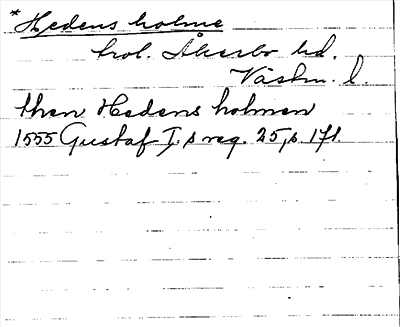 *Hedens holme
trol. Åkerbo hd.
Västm. l.
then Hedens holmen
1555 Gustaf I:s reg. 25, s. 171.